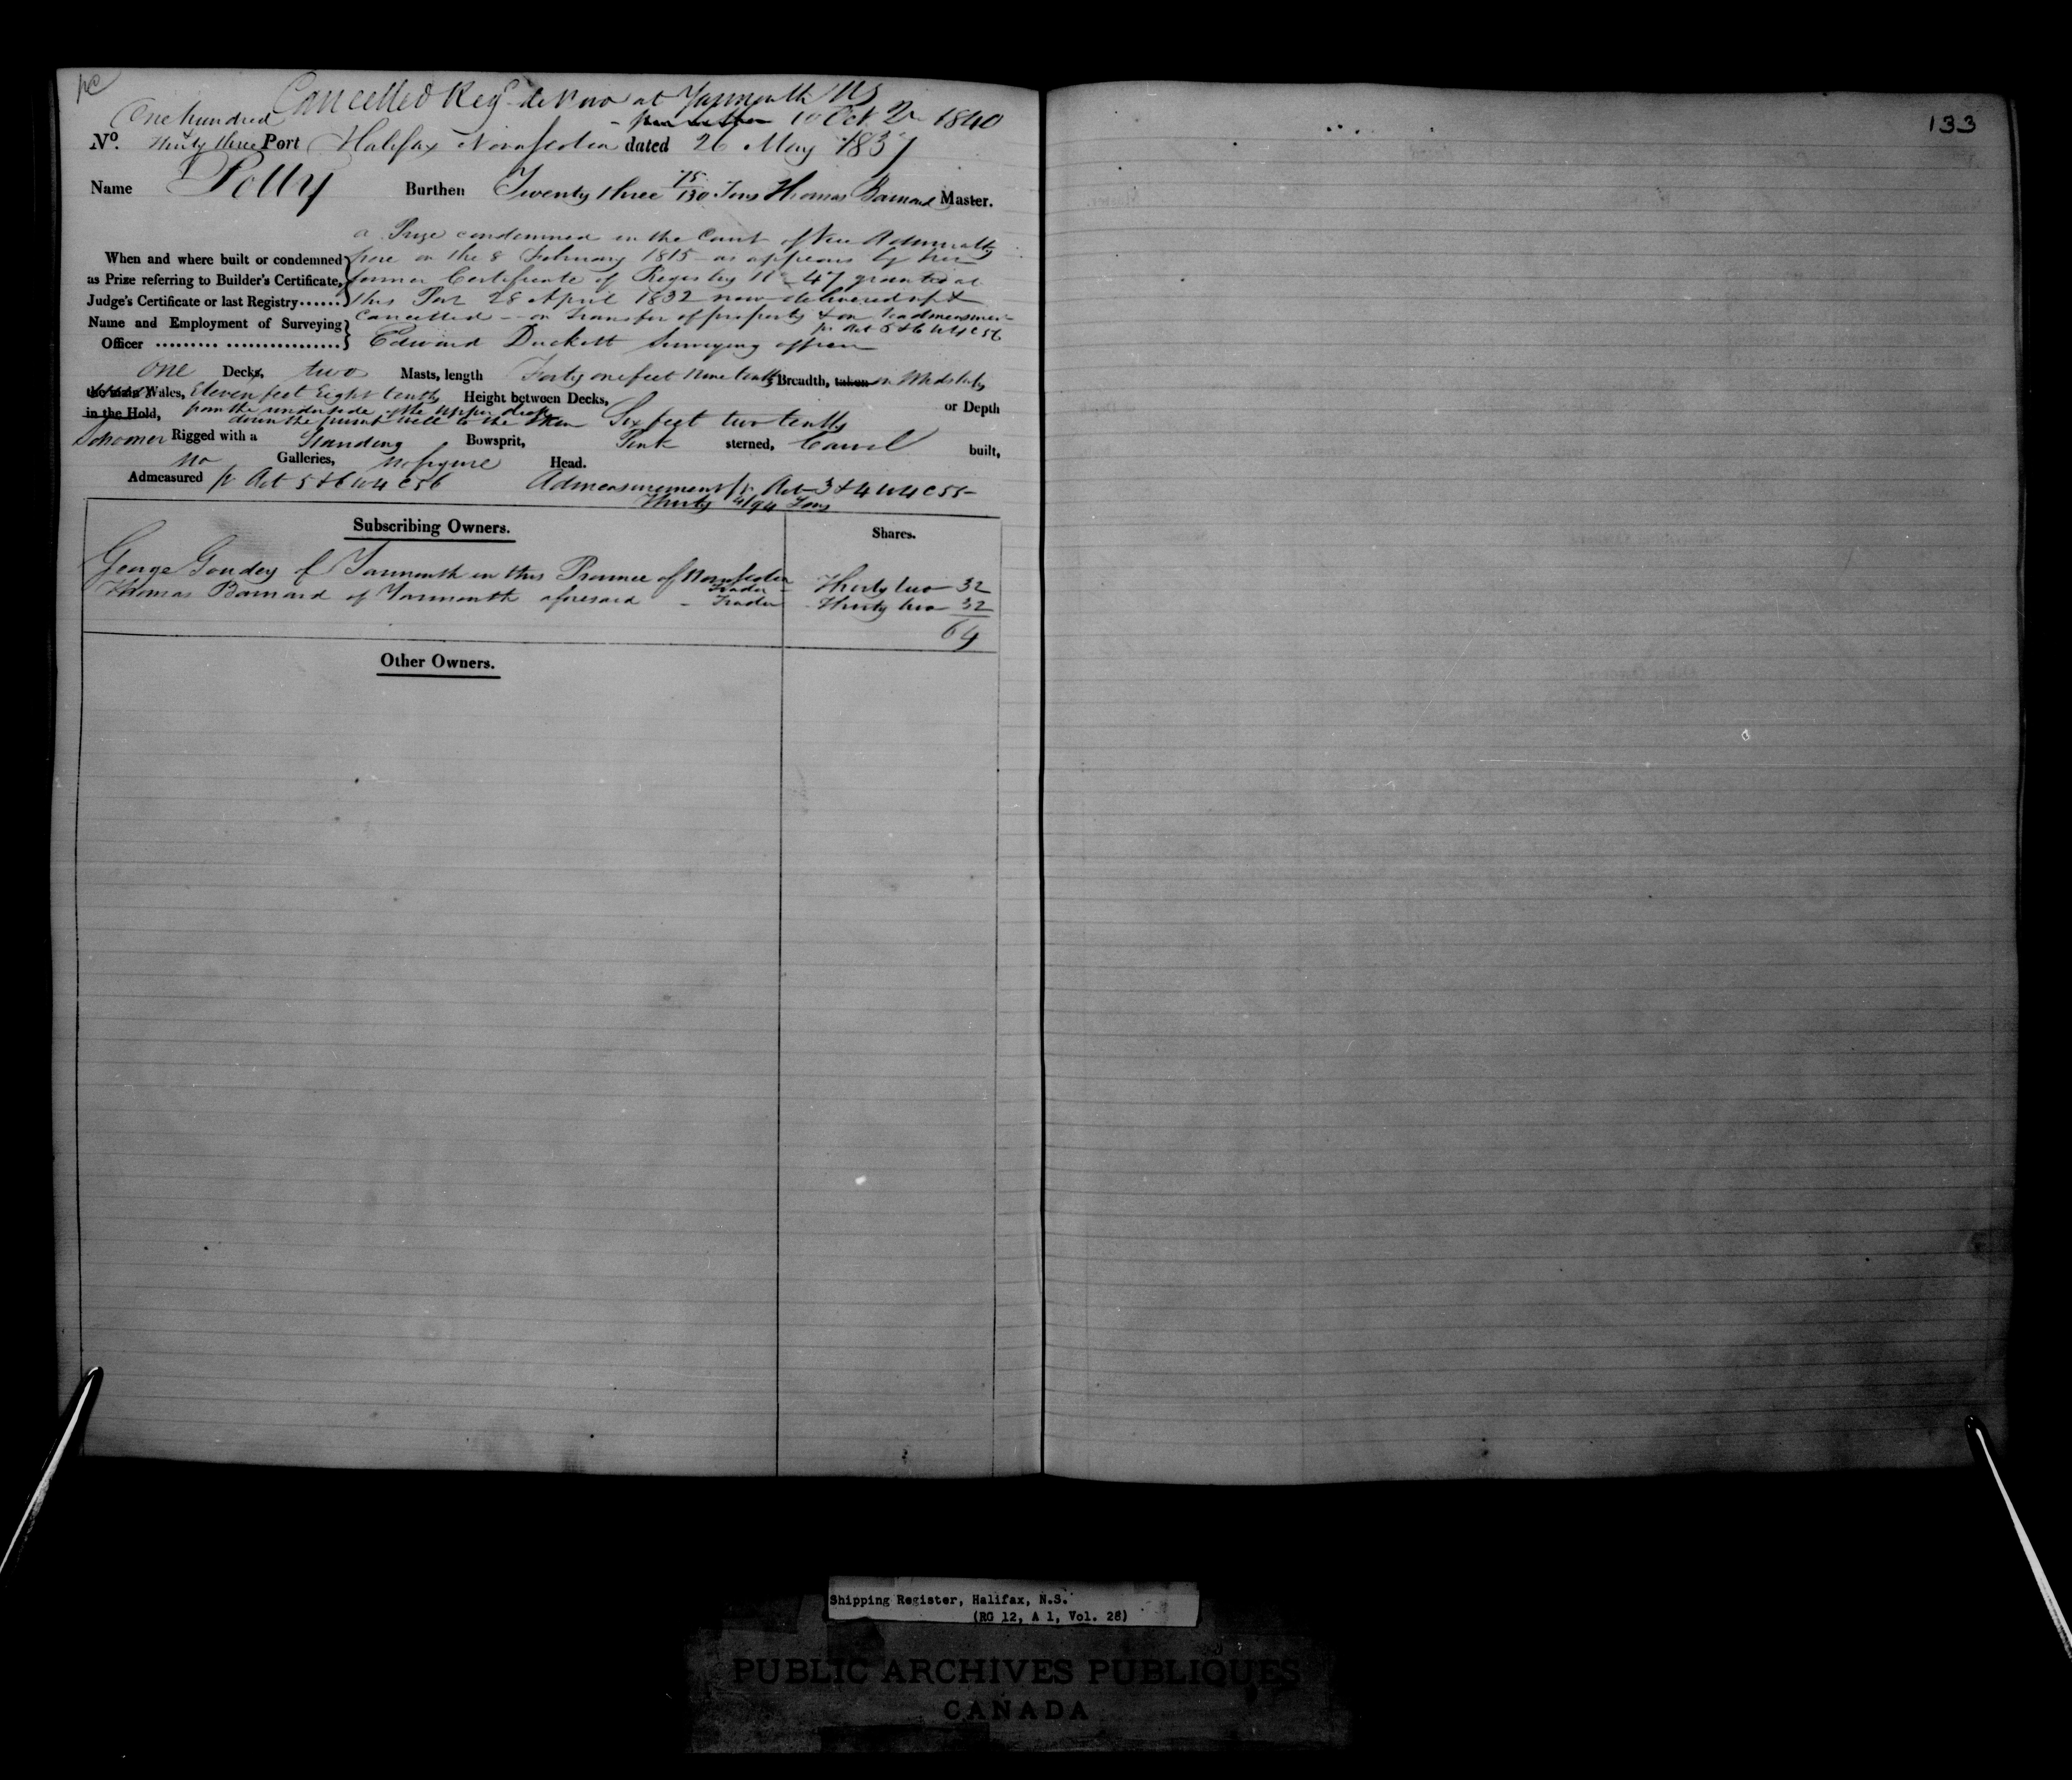 Cancelled Reg. de Novo at Yarmouth NS
10 Oct 1840
One hundred
No. & Thirty three Port Halifax Nova Scotia dated 26 May 1837
133
Name Polly Burthen Twenty three 75/130 Tons Thomas Barnard Master.
a Prize condemned in the Court of Vice Admiralty
When and where built or condemned here on the 8 February 1815 as appears by her
as Prize referring to Builder's Certificate, former Certificate of Registry No 47 granted at
Judge's Certificate or last Registry...... this Port 28 April 1832 now delivered up &
Cancelled - on transfer of property & on readmeasurement
pr Act 5 & 6 W 4 C 56
Name and Employment of Surveying
Officer ......... ................ Edward Duckett Surveying officer
One Decks, two Masts, length Forty one feet Nine tenths Breadth, taken in Midships
the main Wales, Eleven feet Eight tenths Height between Decks, or Depth
in the Hold, from the underside of the upper deck
down the pump well to the Skin Six feet two tenths
Schooner Rigged with a Standing Bowsprit, Pink sterned, Carvel built,
No Galleries, no figure Head.
Admeasured pr Act 5 & 6 W 4 C 56 Admeasurement pr Act 3 & 4 W 4 C 55
Thirty 4/94 Tons
Subscribing Owners. Shares.
George Goudey of Yarmouth in this Province of Nova Scotia
Trader - Thirty two 32
Thomas Barnard of Yarmouth aforesaid - Trader Thirty two 32
64
Other Owners.
Shipping Register, Halifax, N.S.
(RG 12, A 1, Vol. 28)
PUBLIC ARCHIVES PUBLIQUES
CANADA